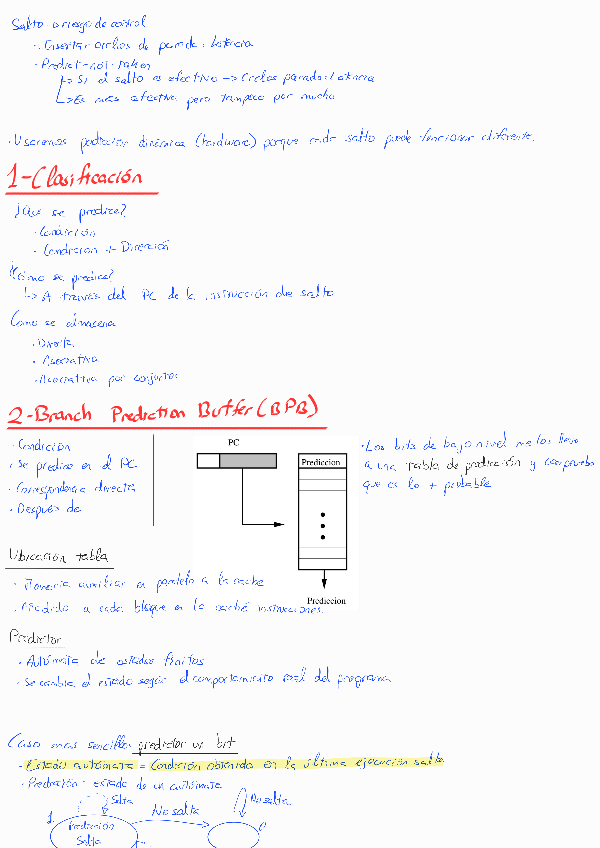 Salto o riesgo de control
· Insertar ciclos de parada: Latencia
· Predict-not-taken
↳ Si el salto es efectivo → Ciclos parada: Latencia
↳ Es más efectiva pero tampoco por mucho
· Usaremos predicción dinámica (hardware) porque cada salto puede funcionar diferente.
1-Clasificación
¿Qué se predice?
· Condición
· Condición + Dirección
¿Cómo se predice?
↳ A través del PC de la instrucción de salto
Como se almacena
· Directa
· Asociativa
· Asociativa por conjuntos
2-Branch Prediction Buffer (BPB)
· Condición
· Se predice en el PC
· Correspondencia directa
· Después de
PC
Prediccion
Prediccion
· Los bits de bajo nivel me los llevo
a una tabla de predicción y compruebo
que es lo + probable
Ubicación tabla
· Memoria auxiliar en paralelo a la cache
· Añadido a cada bloque en la caché instrucciones.
Predictor
· Autómata de estados finitos
· Se cambia el estado según el comportamiento real del programa
Caso más sencillo: predictor un bit
· Estado autómata = Condición obtenida en la última ejecución salto
· Predicción: estado de un autómata
Salta
No salta
No salta
1
Predicción
Salta
0